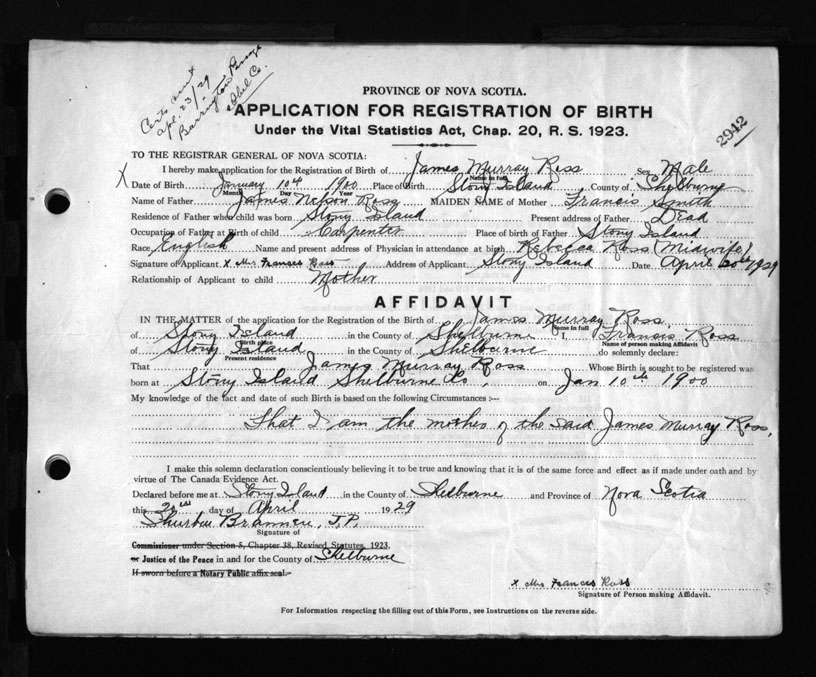 Cert sent
Apl. 23/29
Barrington Passage
Shel Co.
PROVINCE OF NOVA SCOTIA.
APPLICATION FOR REGISTRATION OF BIRTH
Under the Vital Statistics Act, Chap. 20, R. S. 1923.
2942
TO THE REGISTRAR GENERAL OF NOVA SCOTIA:
I hereby make application for the Registration of Birth of James Murray Ross Sex Male
Name in full
X Date of Birth January 10th 1900 Place of Birth Stony Island County of Shelburne
Month Day Year
Name of Father James Nelson Ross MAIDEN NAME of Mother Francis Smith
Residence of Father when child was born Stony Island Present address of Father Dead
Occupation of Father at Birth of child Carpenter Place of birth of Father Stony Island
Race English Name and present address of Physician in attendance at birth Rebecca Ross (Midwife)
Signature of Applicant x Mrs Frances Ross Address of Applicant Stony Island Date April 20th 1929
Relationship of Applicant to child Mother
AFFIDAVIT
IN THE MATTER of the application for the Registration of the Birth of James Murray Ross,
Name in full
of Stony Island in the County of Shelburne I, Francis Ross
Birth place Name of person making Affidavit
of Stony Island in the County of Shelburne do solemnly declare:
Present residence
That James Murray Ross Whose Birth is sought to be registered was
born at Stony Island Shelburne Co, on Jan 10th 1900
My knowledge of the fact and date of such Birth is based on the following Circumstances :—
That I am the mother of the said James Murray Ross,
I make this solemn declaration conscientiously believing it to be true and knowing that it is of the same force and effect as if made under oath and by
virtue of The Canada Evidence Act.
Declared before me at Stony Island in the County of Shelburne and Province of Nova Scotia
this 20th day of April 1929
Brannen, J.P.
Signature of
Commissioner under Section 5, Chapter 38, Revised Statutes, 1923,
or Justice of the Peace in and for the County of Shelburne
If sworn before a Notary Public affix seal.
x Mrs Frances Ross
Signature of Person making Affidavit.
For Information respecting the filling out of this Form, see Instructions on the reverse side.